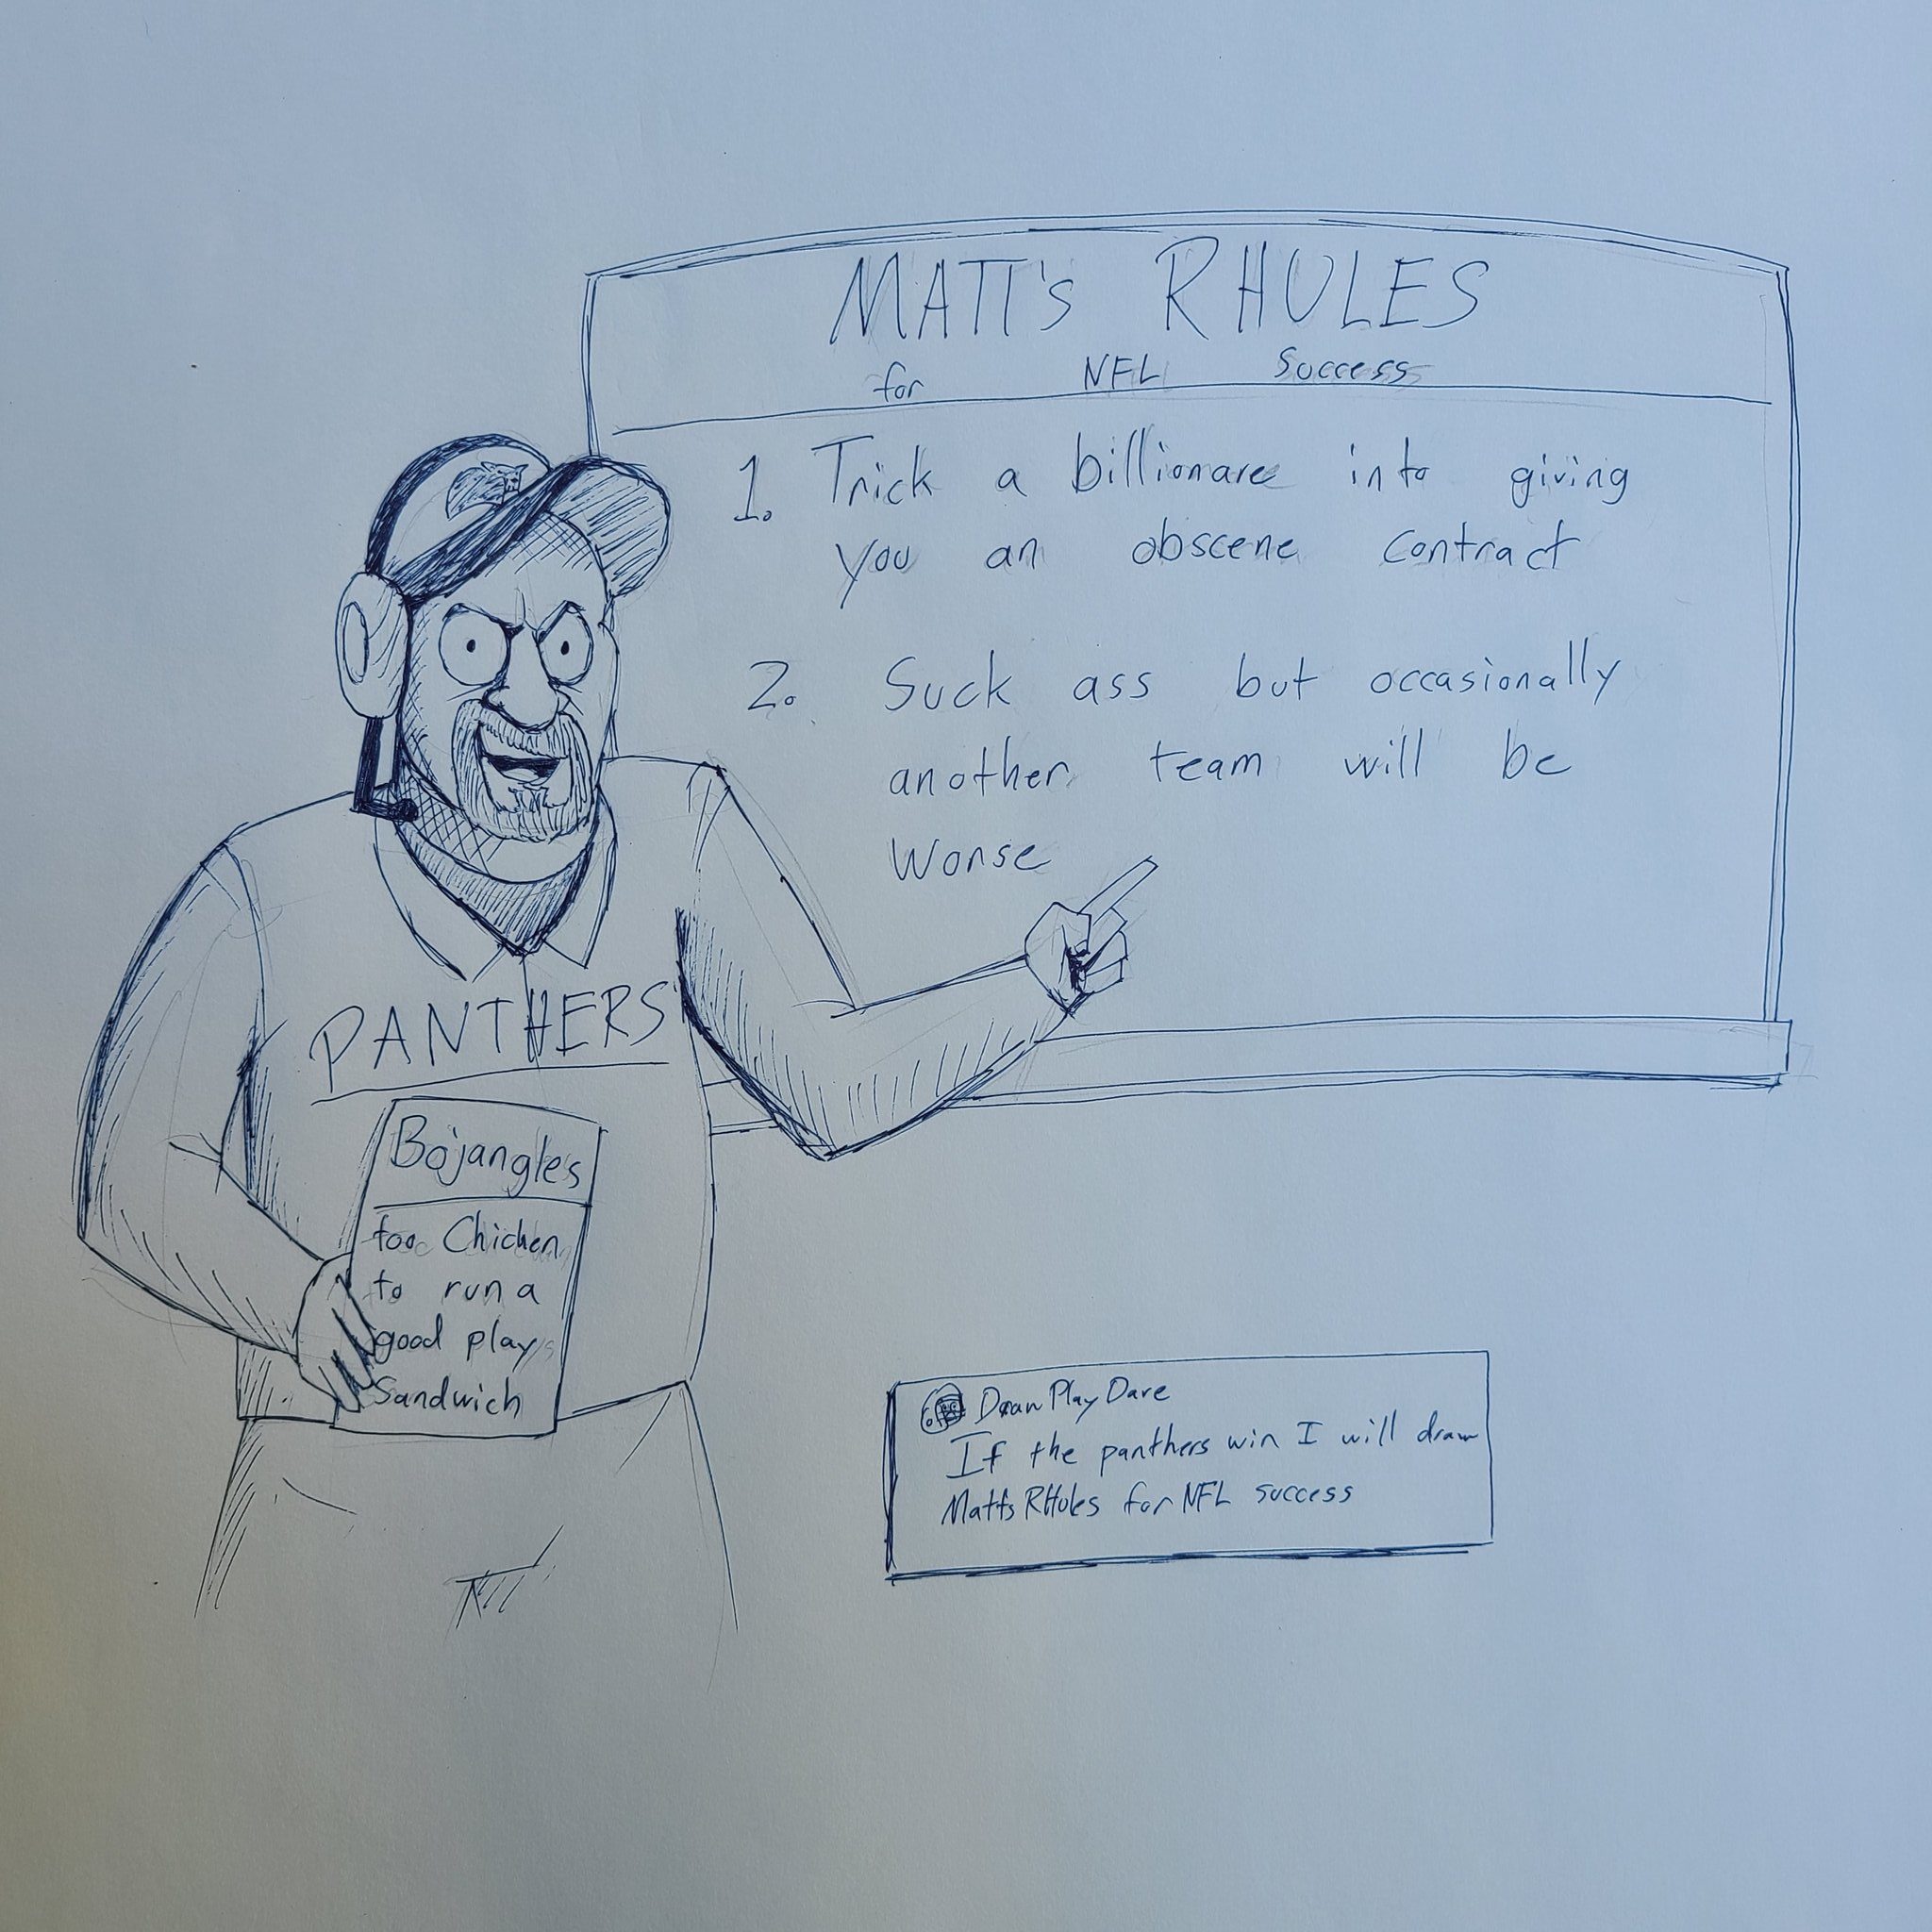 MATT'S RHULES
for NFL Success
1. Trick a billionare into giving
you an obscene contract
2. Suck ass but occasionally
another team will be
worse
PANTHERS
Bojangles
too Chicken
to run a
good play
Sandwich
DrawPlayDave
If the panthers win I will draw
Matts RHules for NFL success